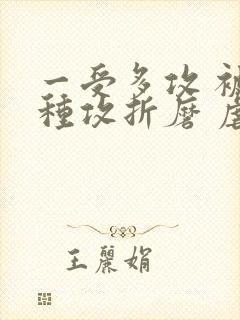 一受多攻 被
種攻折磨 虐
王麗娟